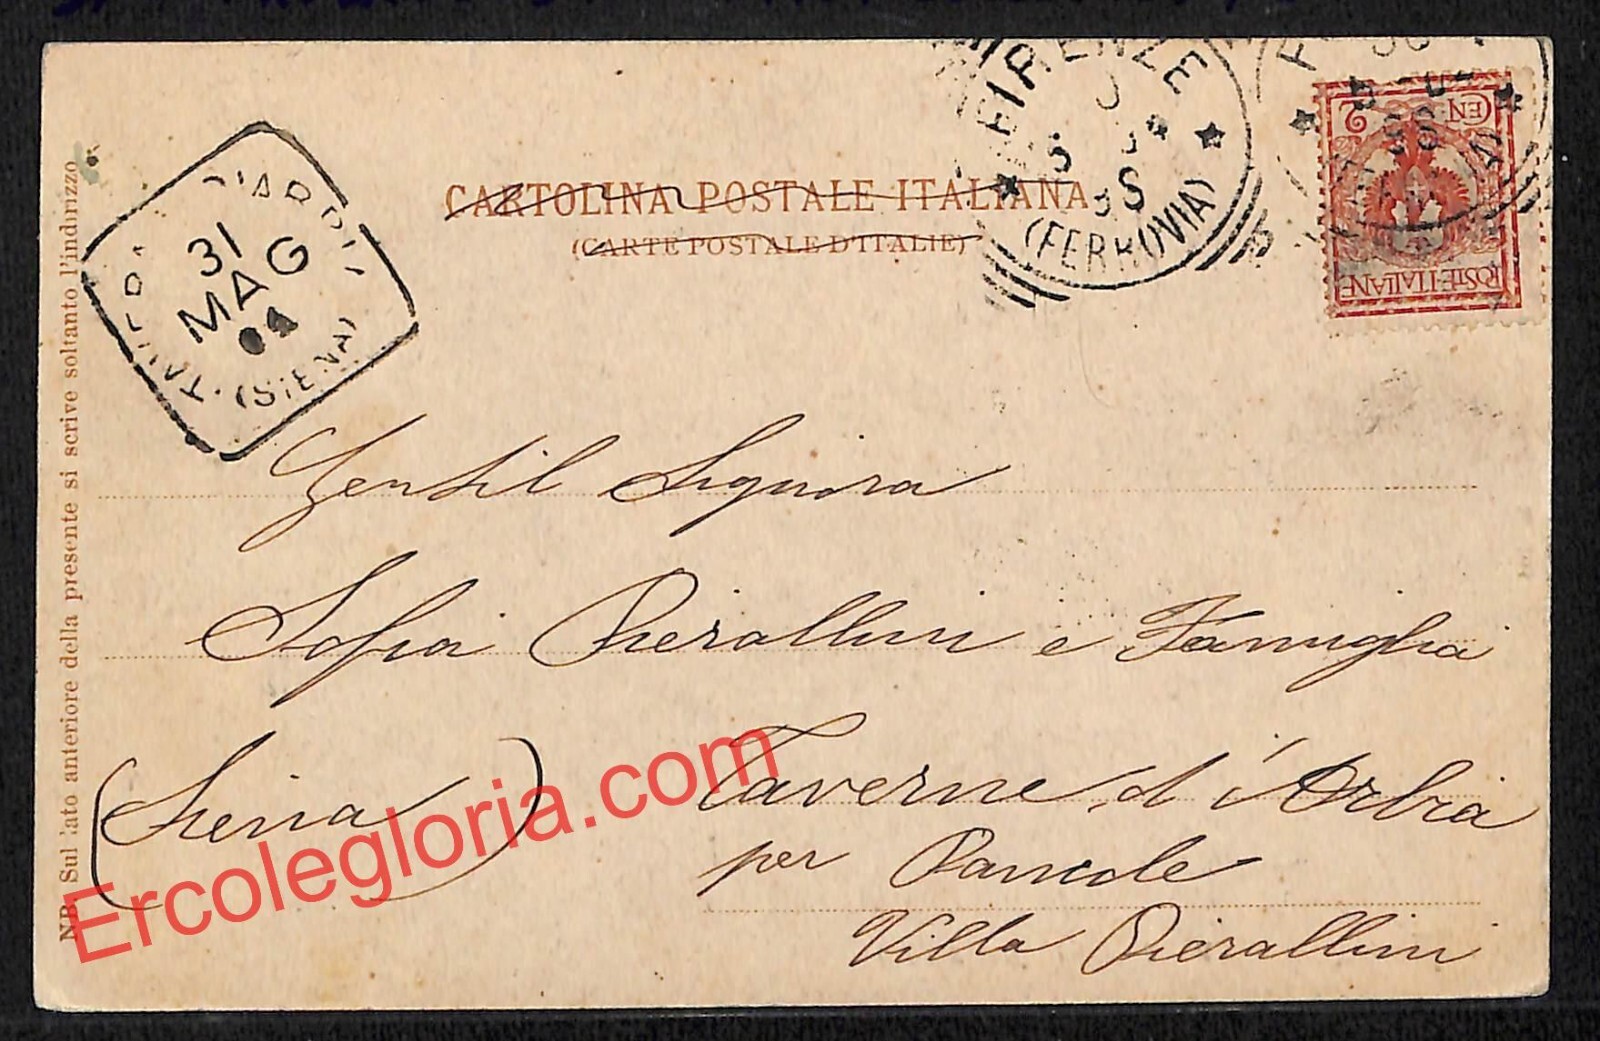 CARTOLINA POSTALE ITALIANA
(CARTE POSTALE D'ITALIE)
FIRENZE
(FERROVIA)
CEN 2
POSTE ITALIANE
31
MAG
04
(SIENA)
Gentil Signora
Sofia Pierallini e Famiglia
Taverne d'Arbia
(Siena)
per Pancole
Villa Pierallini
NB. Sul lato anteriore della presente si scrive soltanto l'indirizzo
Ercolegloria.com